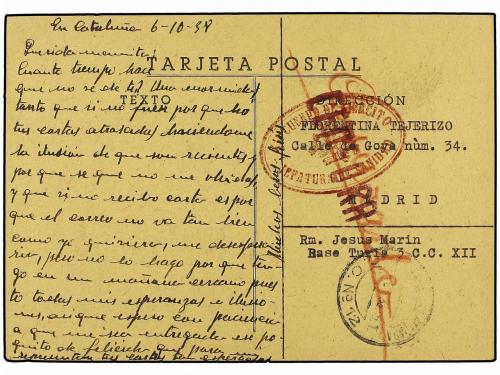 En Cataluña 6-10-38
Querida mamita:
Cuanto tiempo hace
que no sé de ti! Una enormidad
tanto que si no fuera por que leo
tus cartas atrasadas haciendome
la ilusión de que son recientes
por que se que no me olvidas,
y que si no recibo carta es por
que el correo no va tan bien
como yo quisiera, me desespe
ria, pero no lo hago por que ten
go en un mañana cercano pues
to todas mis esperanzas e ilusio
nes, asi que espero con paciencia
a que me sea entregado ese po
quito de felicidad que para
representan tus cartas tan esperadas
Muchos besos
TARJETA POSTAL
TEXTO
DIRECCIÓN
FLORENTINA TEJERIZO
Calle de Goya nùm. 34.
MADRID
Rm. Jesus Marin
Base Turia 3 C.C. XII
CUERPO DE EJERCITO
JEFATURA DE SANIDAD